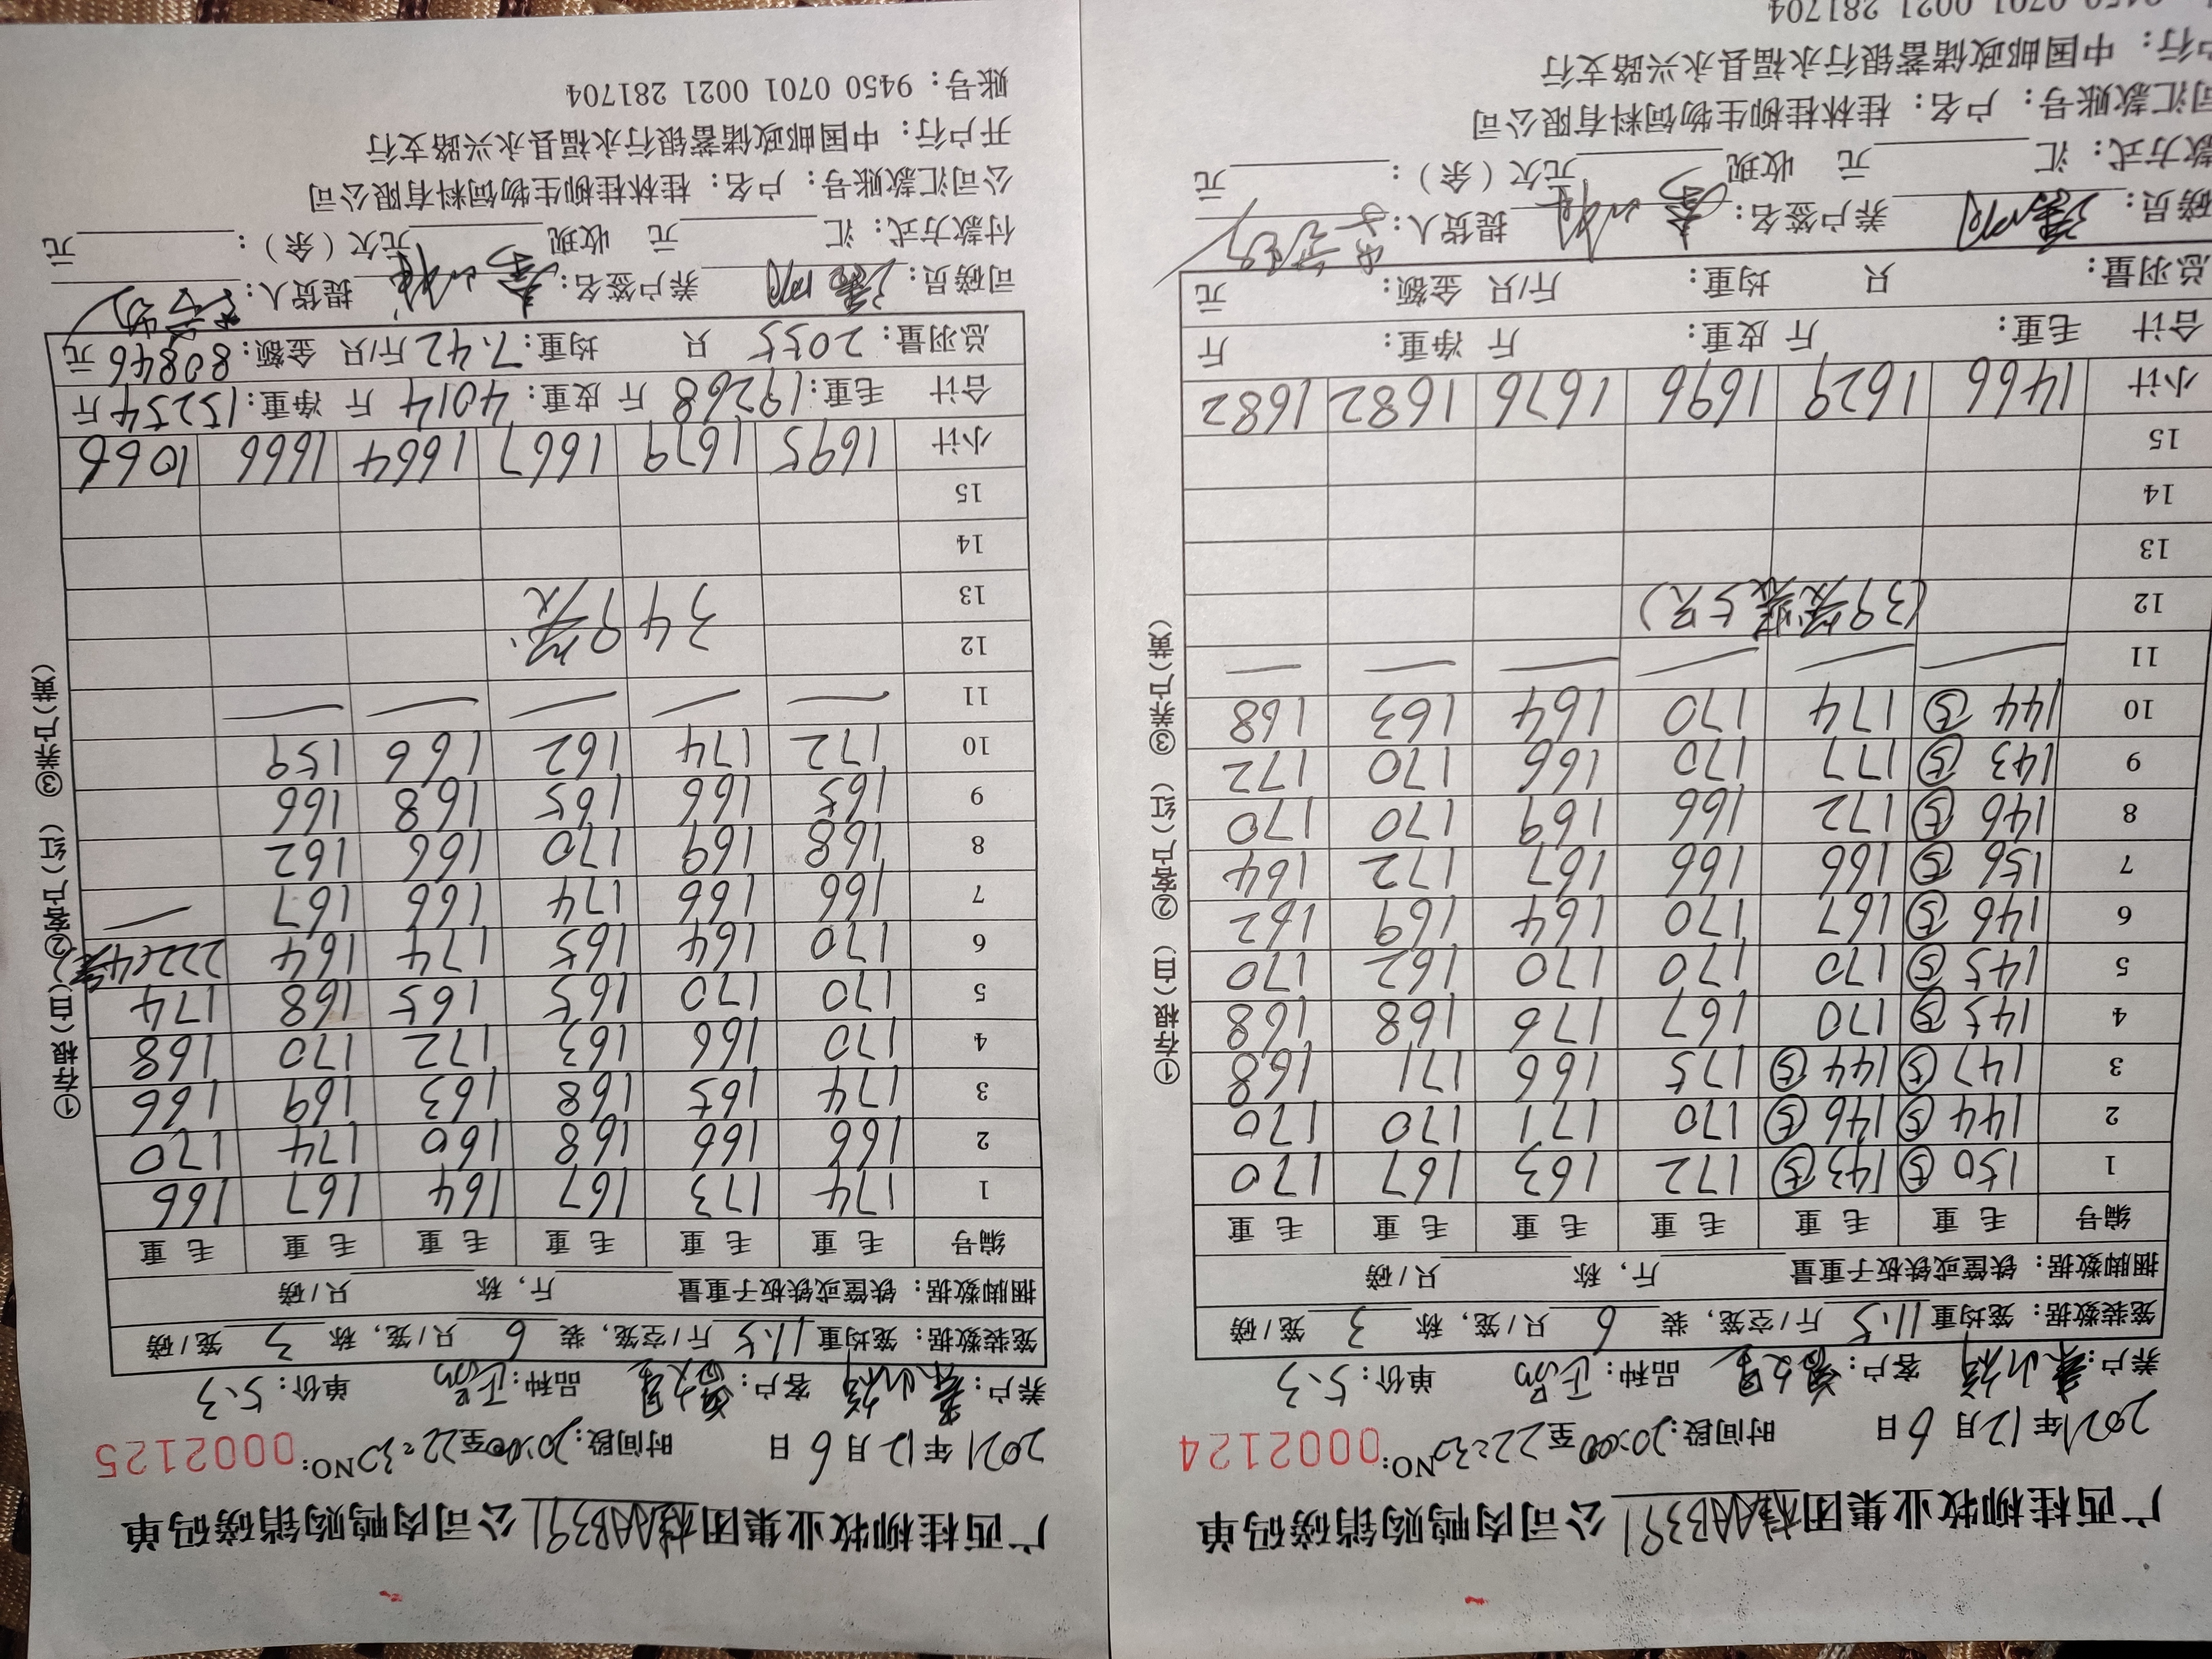 广西桂柳牧业集团桂AAB391公司肉鸭购销磅码单
2021年12月6日 时间段:20:00至22:30 NO:0002124
养户: 客户: 品种:正品 单价:5.3
笼装数据:笼均重11.5斤/空笼,装6只/笼,称3笼/磅
捆脚数据:铁筐或铁板子重量 斤,称 只/磅
编号 毛重 毛重 毛重 毛重 毛重 毛重
1 150⑤ 143⑤ 172 163 167 170
2 144⑤ 146⑤ 170 171 170 170
3 147⑤ 144⑤ 175 166 171 168
4 145⑤ 170 167 176 168 168
5 145⑤ 170 170 170 162 170
6 146⑤ 167 170 164 169 162
7 156⑤ 166 166 167 172 164
8 146⑤ 172 166 169 170 170
9 143⑤ 177 170 166 170 172
10 144⑤ 174 170 164 163 168
11
12 (39笼装5只)
13
14
15
小计 1466 1629 1696 1676 1682 1682
合计 毛重: 斤 皮重: 斤 净重: 斤
总羽量: 只 均重: 斤/只 金额: 元
磅员: 养户签名: 提货人:
款方式:汇 元 收现 元欠(余): 元
司汇款账号:户名:桂林桂柳生物饲料有限公司
户行:中国邮政储蓄银行永福县永兴路支行
9450 0701 0021 281704
①存根(白)②客户(红)③养户(黄)
广西桂柳牧业集团桂AAB391公司肉鸭购销磅码单
2021年12月6日 时间段:20:00至22:30 NO:0002125
养户: 客户: 品种:正品 单价:5.3
笼装数据:笼均重11.5斤/空笼,装6只/笼,称3笼/磅
捆脚数据:铁筐或铁板子重量 斤,称 只/磅
编号 毛重 毛重 毛重 毛重 毛重 毛重
1 174 173 167 164 167 166
2 166 166 168 160 174 170
3 174 165 168 163 169 166
4 170 166 163 172 170 168
5 170 170 165 165 168 174
6 170 164 165 174 164 222(4笼)
7 166 166 174 166 167
8 168 169 170 166 162
9 165 166 165 168 166
10 172 174 162 166 159
11
12 349笼
13
14
15
小计 1695 1679 1667 1664 1666 1066
合计 毛重:19268斤 皮重:4014斤 净重:15254斤
总羽量:2055只 均重:7.42斤/只 金额:80846元
司磅员: 养户签名: 提货人:
付款方式:汇 元 收现 元欠(余): 元
公司汇款账号:户名:桂林桂柳生物饲料有限公司
开户行:中国邮政储蓄银行永福县永兴路支行
账号:9450 0701 0021 281704
①存根(白)②客户(红)③养户(黄)